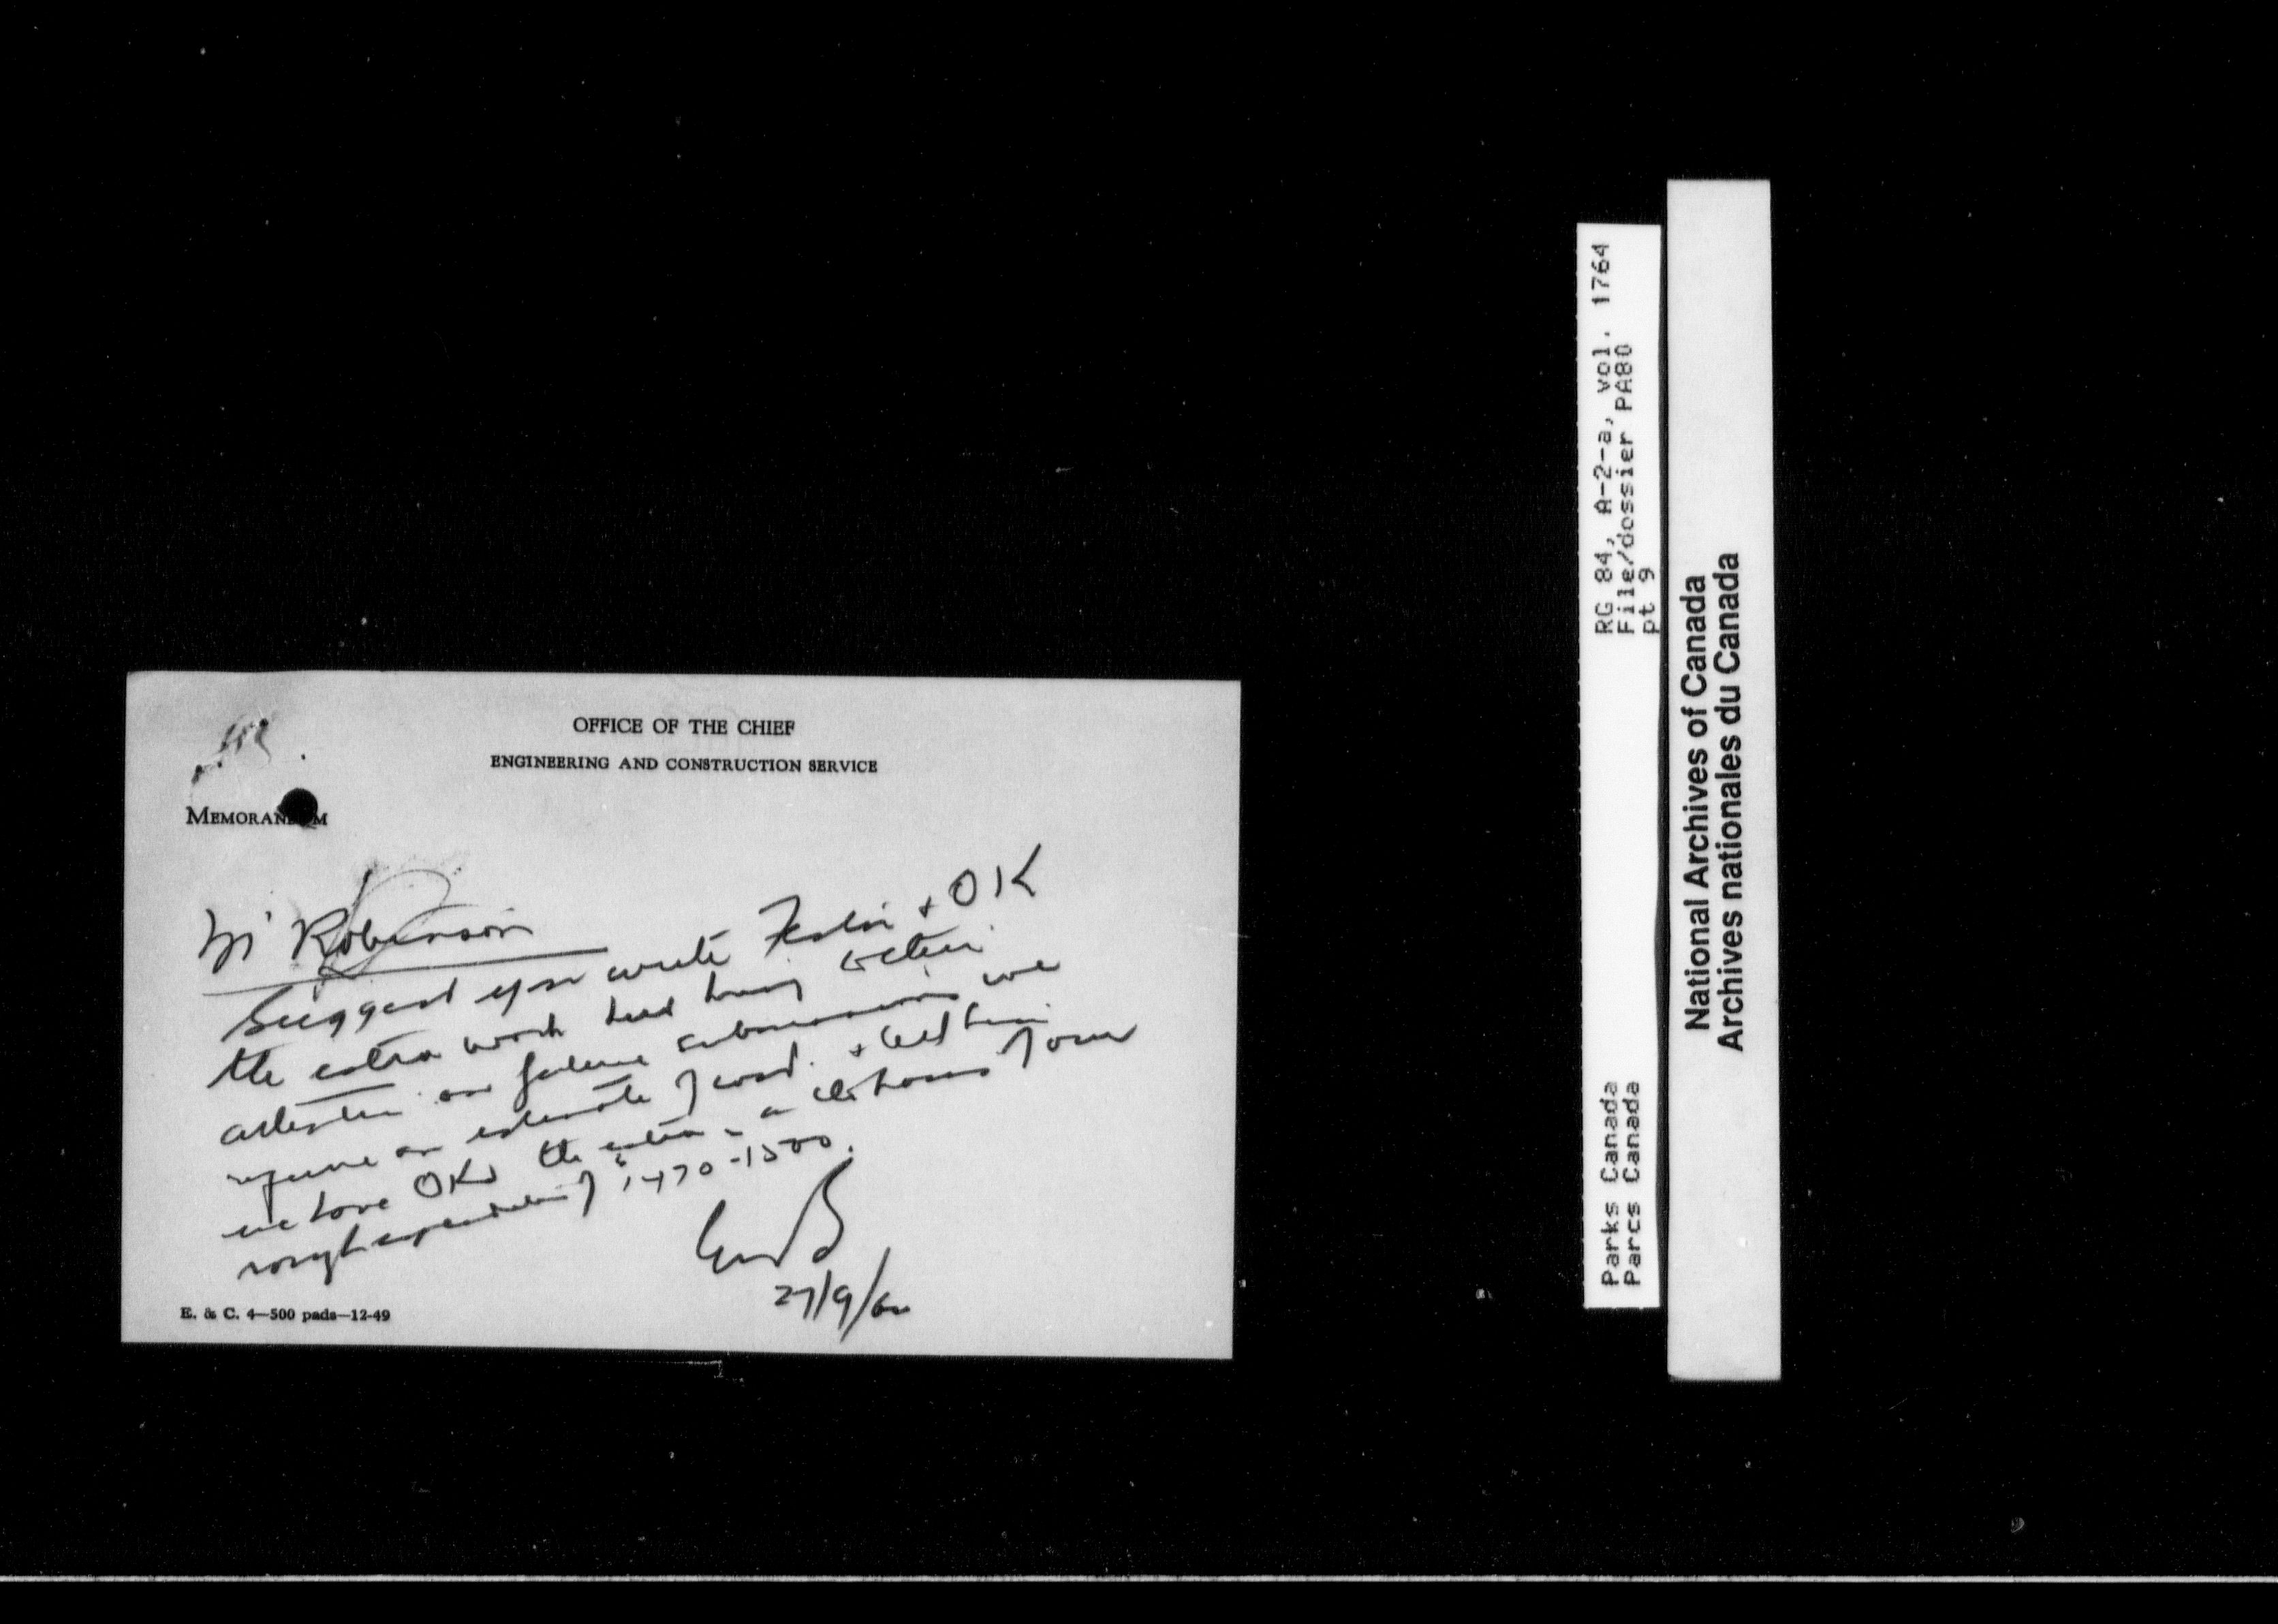 OFFICE OF THE CHIEF
ENGINEERING AND CONSTRUCTION SERVICE
MEMORAN M
Mr Robinson
Suggest you write + OK
the extra work but
on future submissions we
require an estimate of cost. + tell him
we have OK'd the extra on a of our
rough expenditure of $1470-1500.
27/9/60
E. & C. 4—500 pads—12-49
RG 84, A-2-a, vol. 1764
File/dossier PA80
pt 9
Parks Canada
Parcs Canada
National Archives of Canada
Archives nationales du Canada